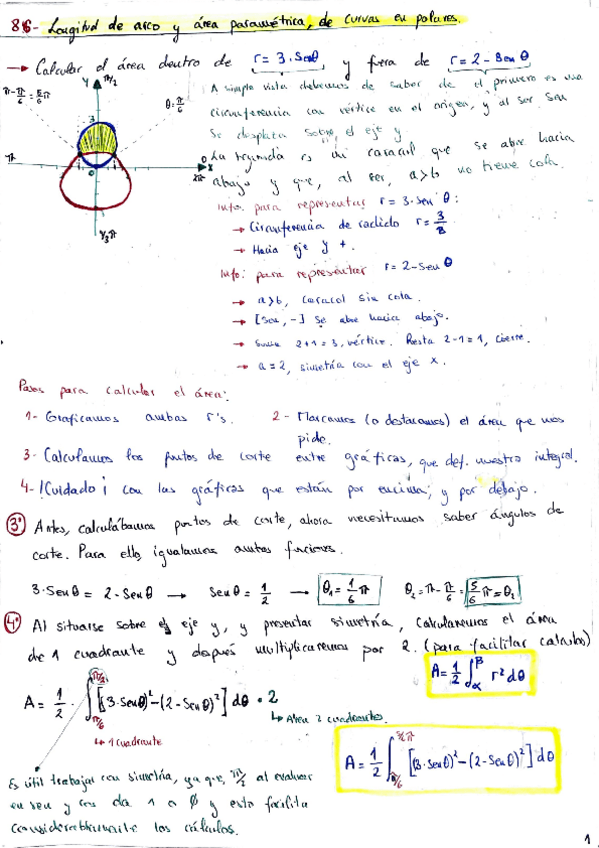 8.5- Longitud de arco y área paramétrica, de curvas en polares.
→ Calcular el área dentro de r = 3·Senθ y fuera de r = 2 - Senθ
A simple vista debemos de saber de el primero es una
circunferencia con vértice en el origen, y al ser Sen
se desplaza sobre el eje y.
La segunda es un caracol que se abre hacia
abajo y que, al ser, a>b no tiene cola.
π-π/6 = 5/6 π
y π/2
θ = π/6
3
π
0 x
2π
Info. para representar r = 3·Sen θ:
→ Circunferencia de radido r = 3/2
→ Hacia eje y +.
Info: para representar r = 2-Sen θ
→ a>b, caracol sin cola.
→ [Sen, -] se abre hacia abajo.
→ Suma 2+1=3, vértice. Resta 2-1=1, cierre.
→ a=2, simetría con el eje x.
Pasos para calcular el área:
1- Graficamos ambas r's. 2- Marcamos (o destacamos) el área que nos
pide.
3- Calculamos los puntos de corte entre gráficas, que def. nuestra integral.
4- ¡Cuidado! con las gráficas que están por encima, y por debajo.
3º Antes, calculábamos puntos de corte, ahora necesitamos saber ángulos de
corte. Para ello, igualamos ambas funciones.
3·Senθ = 2-Senθ → Senθ = 1/2 → θ₁ = 1/6 π θ₂ = π - π/6 = 5/6 π = θ₂
4º Al situarse sobre el eje y, y presentar simetría, calcularemos el área
de 1 cuadrante y después multiplicaremos por 2. (para facilitar calculos)
A = 1/2 ∫_α^β r² dθ
A = 1/2 · ∫_{π/6}^{π/2} [(3·Senθ)² - (2-Senθ)²] dθ · 2
↳ Area 2 cuadrantes.
↳ 1 cuadrante
A = 1/2 ∫_{π/6}^{5/6 π} [(3·Senθ)² - (2-Senθ)²] dθ
Es útil trabajar con simetría, ya que, π/2 al evaluar
en sen y cos da 1 o ∅ y esto facilita
considerablemente los cálculos.
1